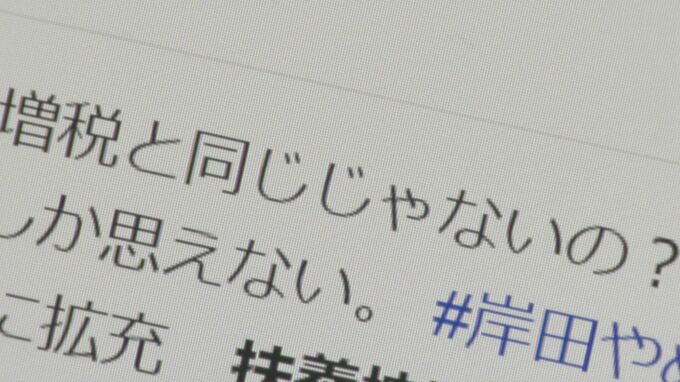 増税と同じじゃないの？
しか思えない。 #岸田や
に拡充 扶養